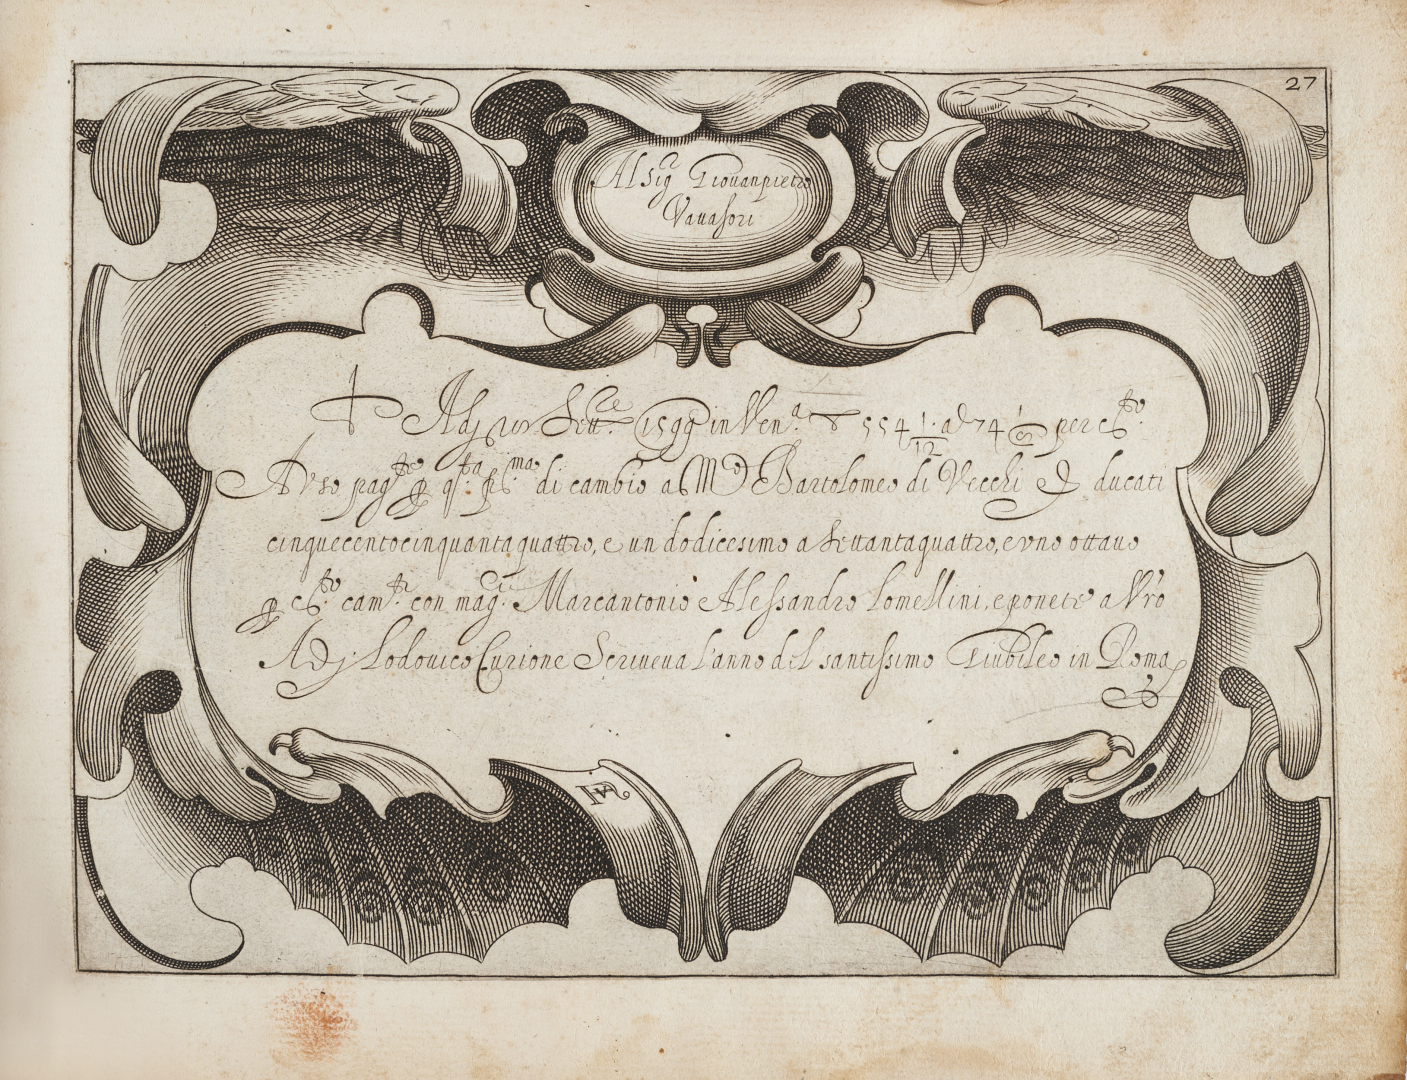 27
Al Sig.r Giouanpietro
Vauasori
Adj xv Sett.e 1599 in Ven.a 554 1/12 a d 74 1/8 per c.to
Avso pag.te p q.ta p.ma di cambio a M.o Bartolomeo di Vecchi ducati
cinquecentocinquantaquattro, e un dodicesimo a settantaquattro, e vno ottauo
p c.to cam.te con mag.ci Marcantonio Alessandro Lomellini, e ponete a Vro
Adj. Lodouico Curione Scriueua l'anno del santissimo Giubileo in Roma